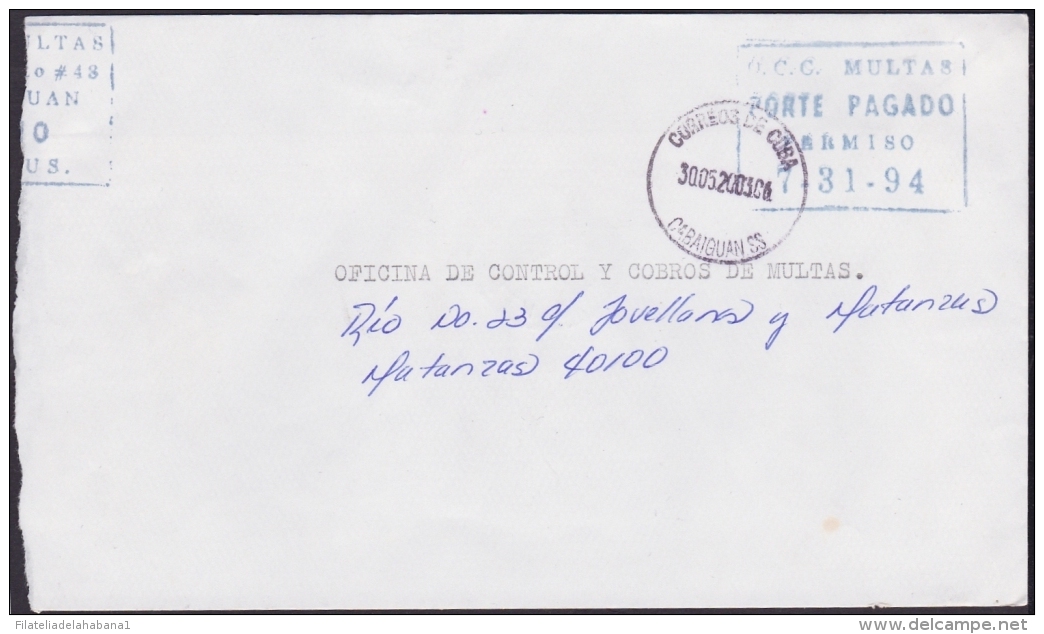 ULTAS
o #43
UAN
O
US.
O.C.C. MULTAS
PORTE PAGADO
PERMISO
7-31-94
CORREOS DE CUBA
30.05.2003.06
CABAIGUAN SS
OFICINA DE CONTROL Y COBROS DE MULTAS.
Río No. 23 e/ Jovellanos y Matanzas
Matanzas 40100
Filateliadelahabana1
delcampe.net